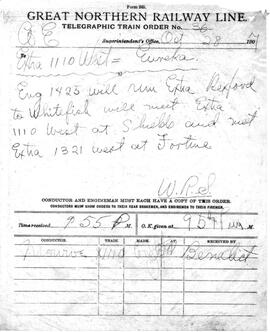 Form 345.
GREAT NORTHERN RAILWAY LINE.
TELEGRAPHIC TRAIN ORDER No. 36
Superintendent's Office, Oct 28 190
To
Extra 1110 West = Eureka.
Eng 1425 will run Extra Rexford
to Whitefish will meet Extra
1110 West at Shields and meet
Extra 1321 west at Fortine
W.R.S.
CONDUCTOR AND ENGINEMAN MUST EACH HAVE A COPY OF THIS ORDER.
CONDUCTORS MUST SHOW ORDERS TO THEIR REAR BRAKEMEN, AND ENGINEMEN TO THEIR FIREMEN.
Time received 955 P M. O.K. given at 957 P M.
CONDUCTOR TRAIN MADE TIME RECEIVED BY
1110 Benedict